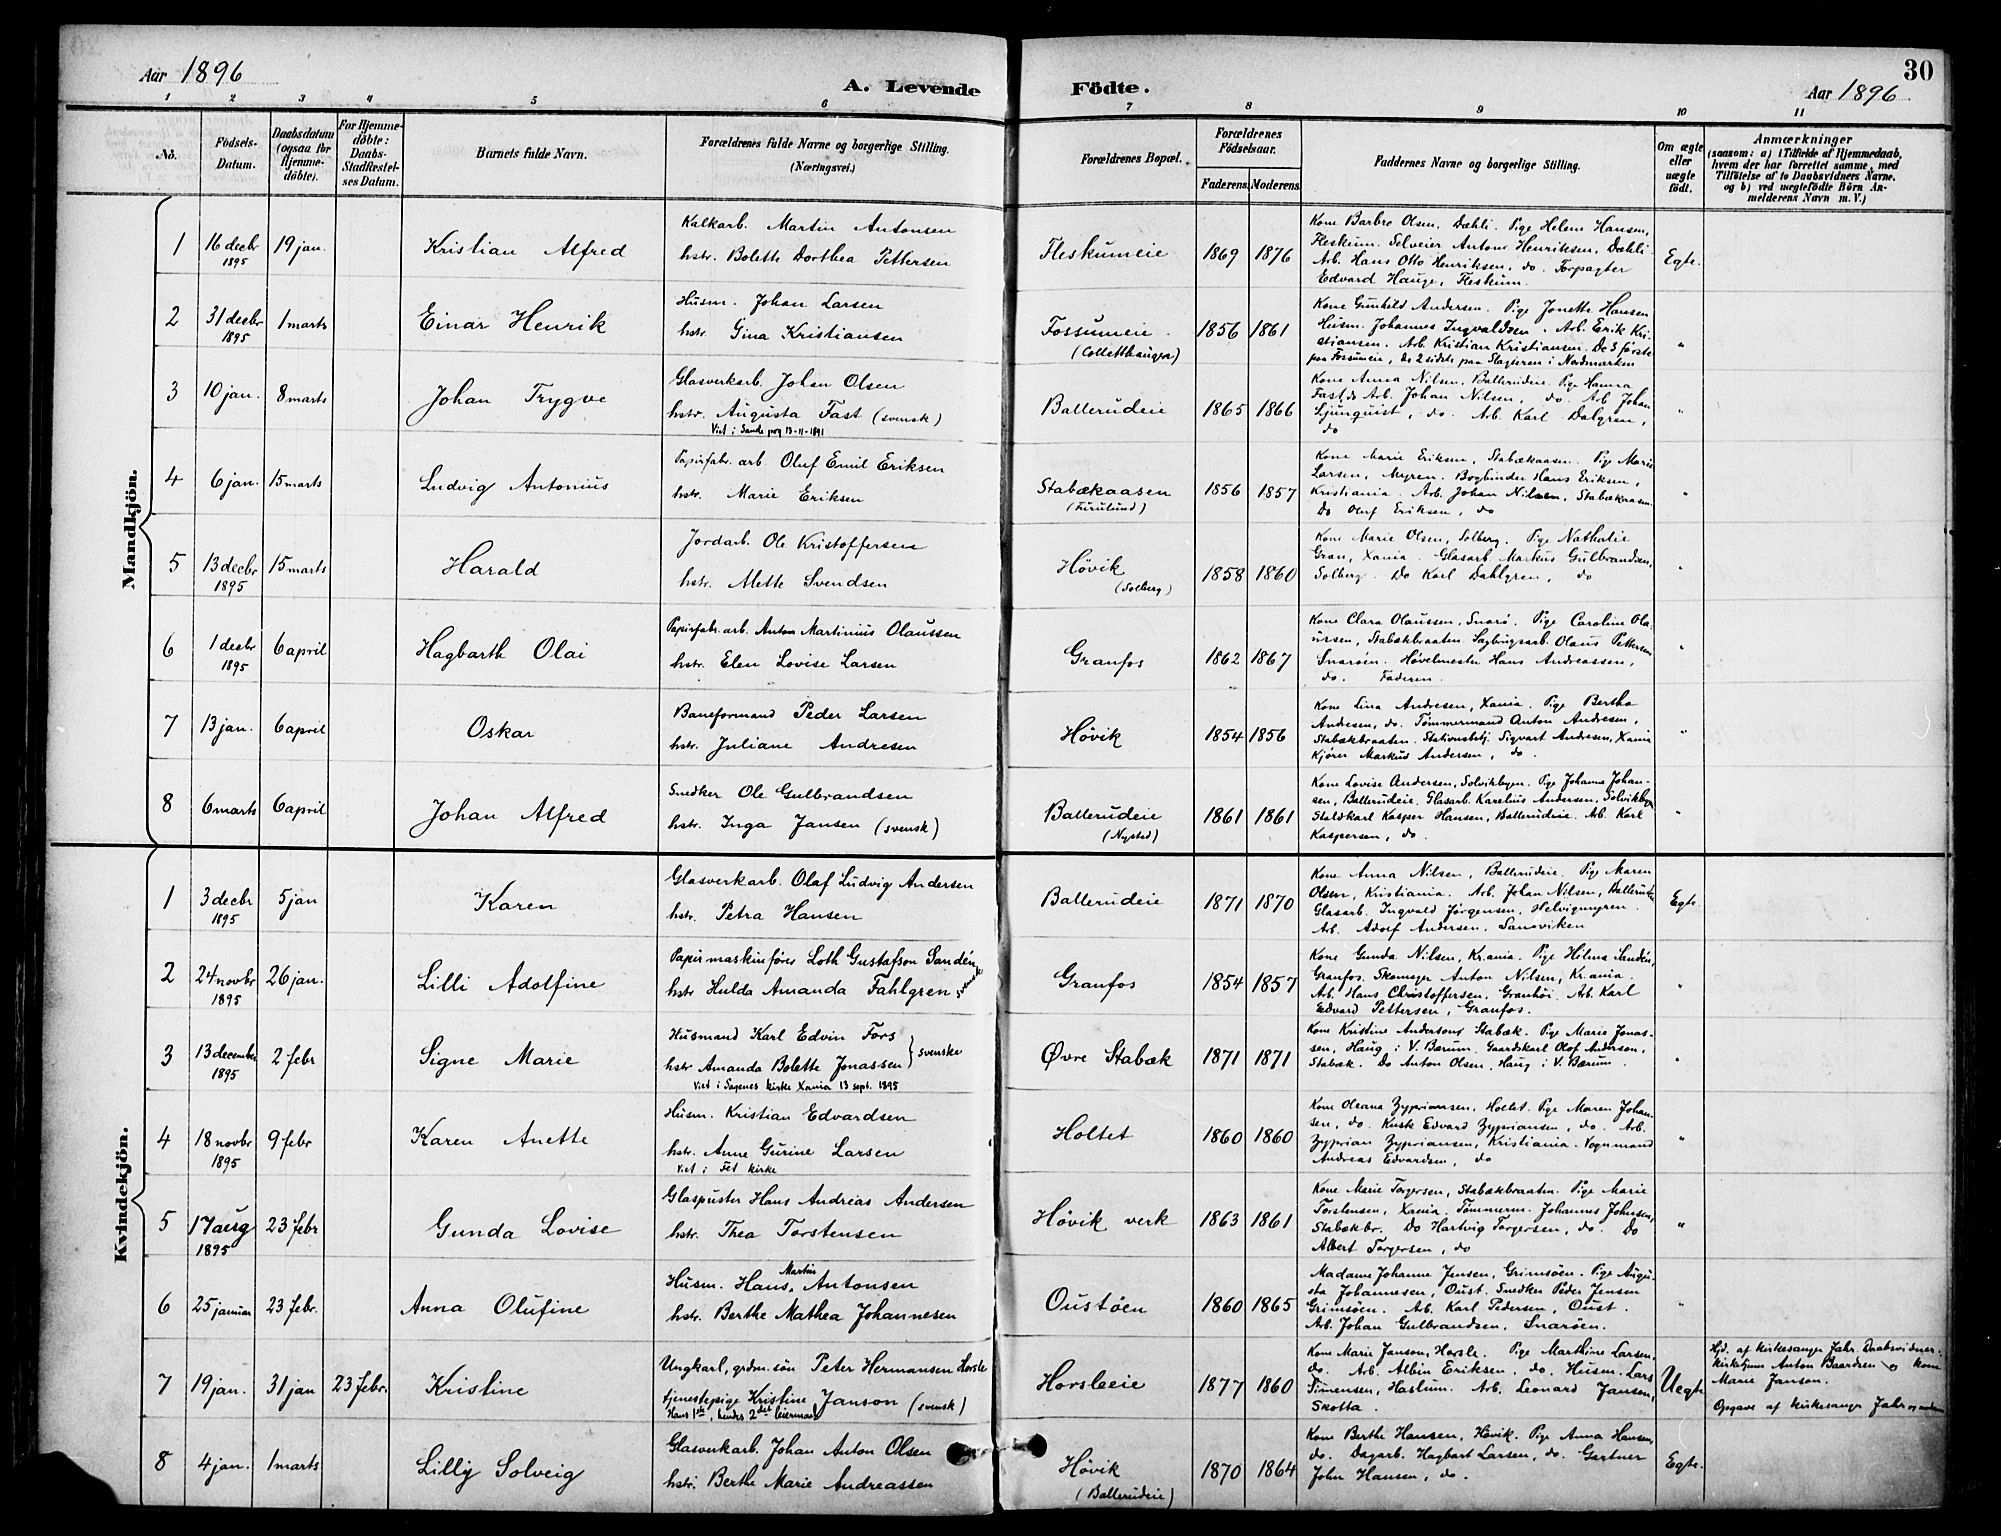 30
Aar 1896
A. Levende Födte.
Aar 1896
1 2 3 4 5 6 7 8 9 10 11
No.
Födsels-Datum.
Daabsdatum (ogsaa for Hjemme-döbte).
For Hjemme-döbte: Daabs-Stadfæstel-ses Datum.
Barnets fulde Navn.
Forældrenes fulde Navne og borgerlige Stilling. (Næringsvei.)
Forældrenes Bopæl.
Forældrenes Födselsaar.
Faderens. Moderens.
Faddernes Navne og borgerlige Stilling.
Om ægte eller uægte födt.
Anmærkninger
(saasom: a) i Tilfælde af Hjemmedaab,
hvem der har forrettet samme, med
Tilföielse af to Daabsvidners Navne.
og b) ved uægtefödte Börn An-
melderens Navn m. V.)
Mandkjön.
1 16 decbr 1895 19 jan. Kristian Alfred
Kalkarb. Martin Antonsen
hstr. Bolette Dorthea Pettersen
Fleskumeie 1869 1876
Kone Barbro Olsen, Dæhli. Pige Helene Hansen,
Fleskum. Selveier Antone Henriksen, Dæhli
Arb. Hans Otto Henriksen, do. Forpagter
Edvard Hauge, Fleskum.
Egte.
2 31 decbr 1895 1 marts Einar Henrik
Husm. Johan Larsen
hstr. Gina Kristiansen
Fossumeie (Colletthaugen) 1856 1861
Kone Gunhild Andersen. Pige Jonette Hansen
Husm. Johannes Ingvaldsen. Arb. Erik Kri-
stiansen. Arb. Kristian Kristiansen. De 3 første
paa Fossumeie, de 2 sidste paa Slagteren i Nordmarken
"
3 10 jan. 8 marts Johan Trygve
Glasverkarb. Johan Olsen
hstr. Augusta Fast (svensk)
Viet i Sande prg 13-11-1891
Ballerudeie 1865 1866
Kone Anna Nilsen, Ballerudeie. Pige Hanna
Fast, do Arb. Johan Nilsen, do. Arb Johan
Ljunquist, do. Arb. Karl Dalgren,
do
"
4 6 jan. 15 marts Ludvig Antonius
Papirfabr. arb. Oluf Emil Eriksen
hstr. Marie Eriksen
Stabækaasen (Furulund) 1856 1857
Kone Marie Eriksen, Stabækaasen. Pige Marie
Larsen, Myren. Bogbinder Hans Eriksen,
Kristiania. Arb. Johan Nilsen, Stabækaasen
Do Oluf Eriksen, do
"
5 13 decbr 1895 15 marts Harald
Jordarb. Ole Kristoffersen
hstr. Mette Svendsen
Høvik (Solberg) 1858 1860
Kone Marie Olsen, Solberg. Pige Nathalie
Gran, Xania. Glasarb. Markus Gulbrandsen,
Solberg. Do Karl Dahlgren, do
"
6 1 decbr 1895 6 april Hagbarth Olai
Papirfabr. arb. Anton Martinius Olaussen
hstr. Elen Lovise Larsen
Granfos 1862 1867
Kone Clara Olaussen, Snarø. Pige Caroline Ola-
ussen, Stabækbraaten. Sagbrugsarb. Olaus Pettersen
Snarøen. Høvelmester Hans Andreassen,
do. Faderen.
"
7 13 jan. 6 april Oskar
Baneformand Peder Larsen
hstr. Juliane Andresen
Høvik 1854 1856
Kone Lina Andresen, Xania. Pige Bertha
Andesen, do. Tømmermand Anton Andresen,
Stabækbraaten. Stationsbetj. Sigvart Andresen, Xania
Kjører Markus Andersen, do.
"
8 6 marts 6 april Johan Alfred
Snedker Ole Gulbrandsen
hstr. Inga Jansen (svensk)
Ballerudeie (Nystad) 1861 1861
Kone Lovise Andersen, Solvikbyen. Pige Johanne Johan-
sen, Ballerudeie. Glasarb. Karelius Andersen, Solvikbyn
Staldkarl Kasper Hansen, Ballerudeie. Arb. Karl
Kaspersen, do.
"
Kvindekjön.
1 3 decbr 1895 5 jan Karen
Glasverkarb. Olaf Ludvig Andersen
hstr. Petra Hansen
Ballerudeie 1871 1870
Kone Anna Nilsen, Ballerudeie. Pige Maren
Olsen, Kristiania. Arb. Johan Nilsen, Ballerudeie
Glasarb. Ingvald Jørgensen, Helvigmyren.
Arb. Adolf Andersen, Sandviken
Egte.
2 24 novbr 1895 26 jan. Lilli Adolfine
Papirmaskinfører Loth Gustafson Sandén
hstr Hulda Amanda Fahlgren svenske
Granfos 1854 1857
Kone Gunda Nilsen, Kr.ania. Pige Hilma Sandén,
Granfos. Skomager Anton Nilsen, Kr.ania.
Arb. Hans Christoffersen, Granhøi. Arb. Karl
Edvard Pettersen, Granfos.
"
3 13 december 1895 2 febr Signe Marie
Husmand Karl Edvin Fors
hstr Amanda Bolette Jonassen } svenske
Viet i Sagenes kirke Xania 13 sept. 1895
Øvre Stabæk 1871 1871
Kone Kristine Anderson, Stabæk. Pige Marie Jonas-
sen, Haug i V. Bærum. Gaardskarl Olof Anderson,
Stabæk. Do Anton Olsen, Haug i V. Bærum.
"
4 18 novbr 1895 9 febr Karen Anette
Husm. Kristian Edvardsen
hstr. Anne Gurine Larsen
Viet i Fet kirke
Holtet 1860 1860
Kone Oleana Zypriansen, Holtet. Pige Maren Johan-
sen, do. Kusk Edvard Zypriansen, do. Arb.
Zyprian Zypriansen, Kristiania. Vognmand
Andreas Edvardsen, do
"
5 17 aug 1895 23 febr Gunda Lovise
Glaspuster Hans Andreas Andersen
hstr. Thea Torstensen
Høvik verk 1863 1861
Kone Marie Torgersen, Stabækbraaten. Pige Marie
Torstensen, Xania. Tømmerm. Johannes Johnsen,
Stabækbr. Do Hartvig Torgersen, do. Do
Albert Torgersen, do
"
6 25 januar 23 febr. Anna Olufine
Husm. Hans Martin Antonsen
hstr. Berthe Mathea Johannesen
Oustøen 1860 1865
Madame Johanne Jensen, Grimsøen. Pige Augu-
sta Johannesen, Oust. Snedker Peder Jensen
Grimsøen. Arb. Karl Pedersen, Oust.
Arb. Johan Gulbrandsen, Snarøen.
"
7 19 jan. 31 jan 23 febr. Kristine
Ungkarl, grdm. søn Peter Hermansen Horsle
tjenestepige Kristine Janson (svensk)
Hans 1ste, hendes 2det leiermaal
Horsleeie 1877 1860
Kone Marie Janson, Horsle. Pige Marthine Larsen,
do. Arb. Albin Eriksen, do. Husm. Lars
Simensen, Haslum. Arb. Leonard Jansen,
Skotta.
Uegte
Hjd. af kirkesanger Jahr. Daabsvidner:
kirketjener Anton Baardsen og kone
Marie Janson.
Opgave af kirkesanger Jahr og moderen
8 4 jan. 1 marts Lilly Solveig
Glasverkarb. Johan Anton Olsen
hstr. Berthe Marie Andreassen
Høvik (Ballerudeie) 1870 1864
Kone Berthe Hansen, Høvik. Pige Anna Hansen,
do. Dagarb. Hagbart Larsen, do. Gartner
John Hansen, do.
Egte.